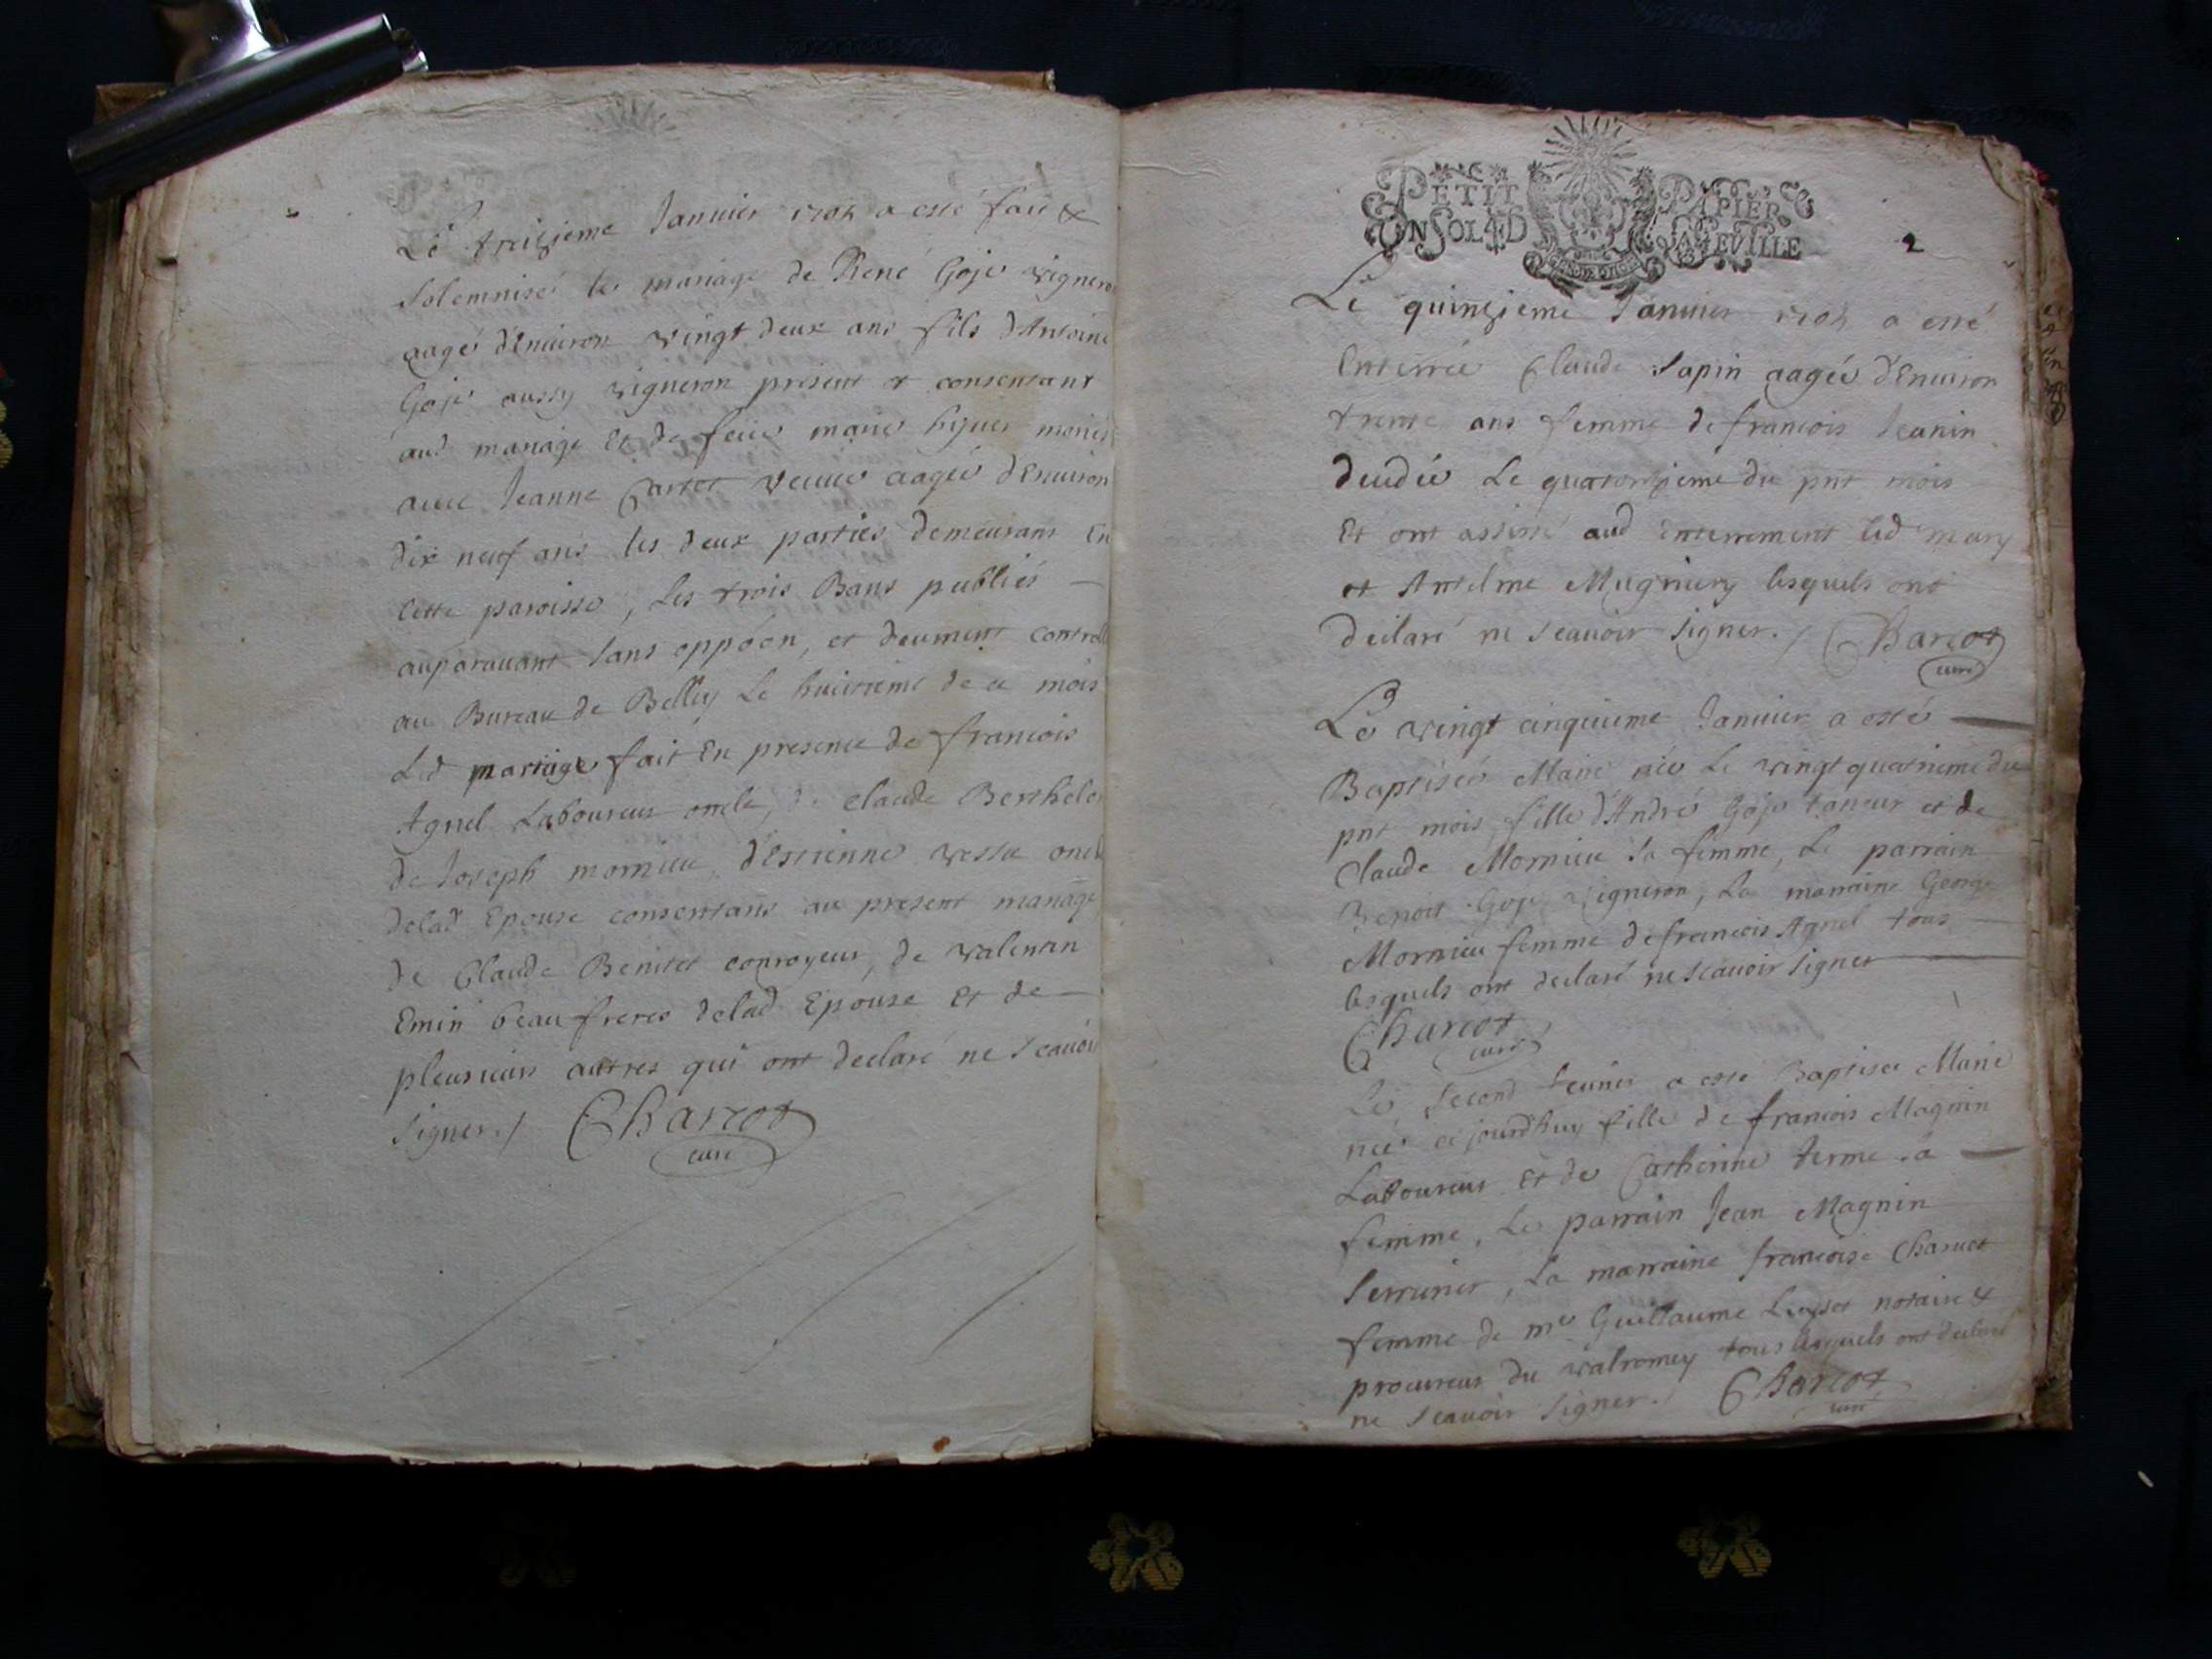 Le treizieme Januier 1705 a esté fait &
Solemnisé le mariage de René Goje vigneron
aagé d'Enuiron vingt deux ans fils d'Antoine
Goje aussy vigneron present et consentant
aud mariage Et de feüe marie
auec Jeanne Cartet aagée d'Enuiron
dix neuf ans les deux parties demeurans En
Cette paroisse, Les trois Bans publiés —
auparauant sans oppôon, et deument controllé
au Bureau de Belley Le huictieme de ce mois
Led mariage fait En presence de francois
Agnel Laboureur oncle, de claude Berthelet
de Joseph mornieu, d'Estienne vessu oncle
delad Epouse consentans au present mariage
de Claude Benitet conroyeur, de valentin
Emin beaufreres delad Epouse Et de —
pleusieurs autres qui ont declaré ne scauoir
signer./ Charcot
curé
PETIT PAPIER
UN SOL 4 D LA FEVILLE
2
Le quinzieme Januier 1705 a esté
Enterrée Claude Sapin aagée d'Enuiron
trente ans femme de francois Jeanin
decedée Le quatorzieme du pnt mois
Et ont assisté aud Enterrement led mary
et Antelme Mugniery lesquels ont
declaré ne scauoir signer./ Charcot
curé
Le vingt cinquieme Januier a esté —
Baptisée Marie née Le vingt quatrieme du
pnt mois, fille d'André Goje taneur et de
Claude Mornieu sa femme, Le parrain
Benoit Goje vigneron, La marraine George
Mornieu femme de francois Agnel tous —
lesquels ont declaré ne scauoir signer —
Charcot
curé
Le second feurier a esté Baptisée Marie
née ce jourd'huy fille de francois Magnin
Laboureur Et de Catherine terme sa —
femme, Le parrain Jean Magnin
serrurier, La marraine francoise Charcot
femme de me Guillaume notaire &
procureur du valromey tous lesquels ont declaré
ne scauoir signer./ Charcot
curé